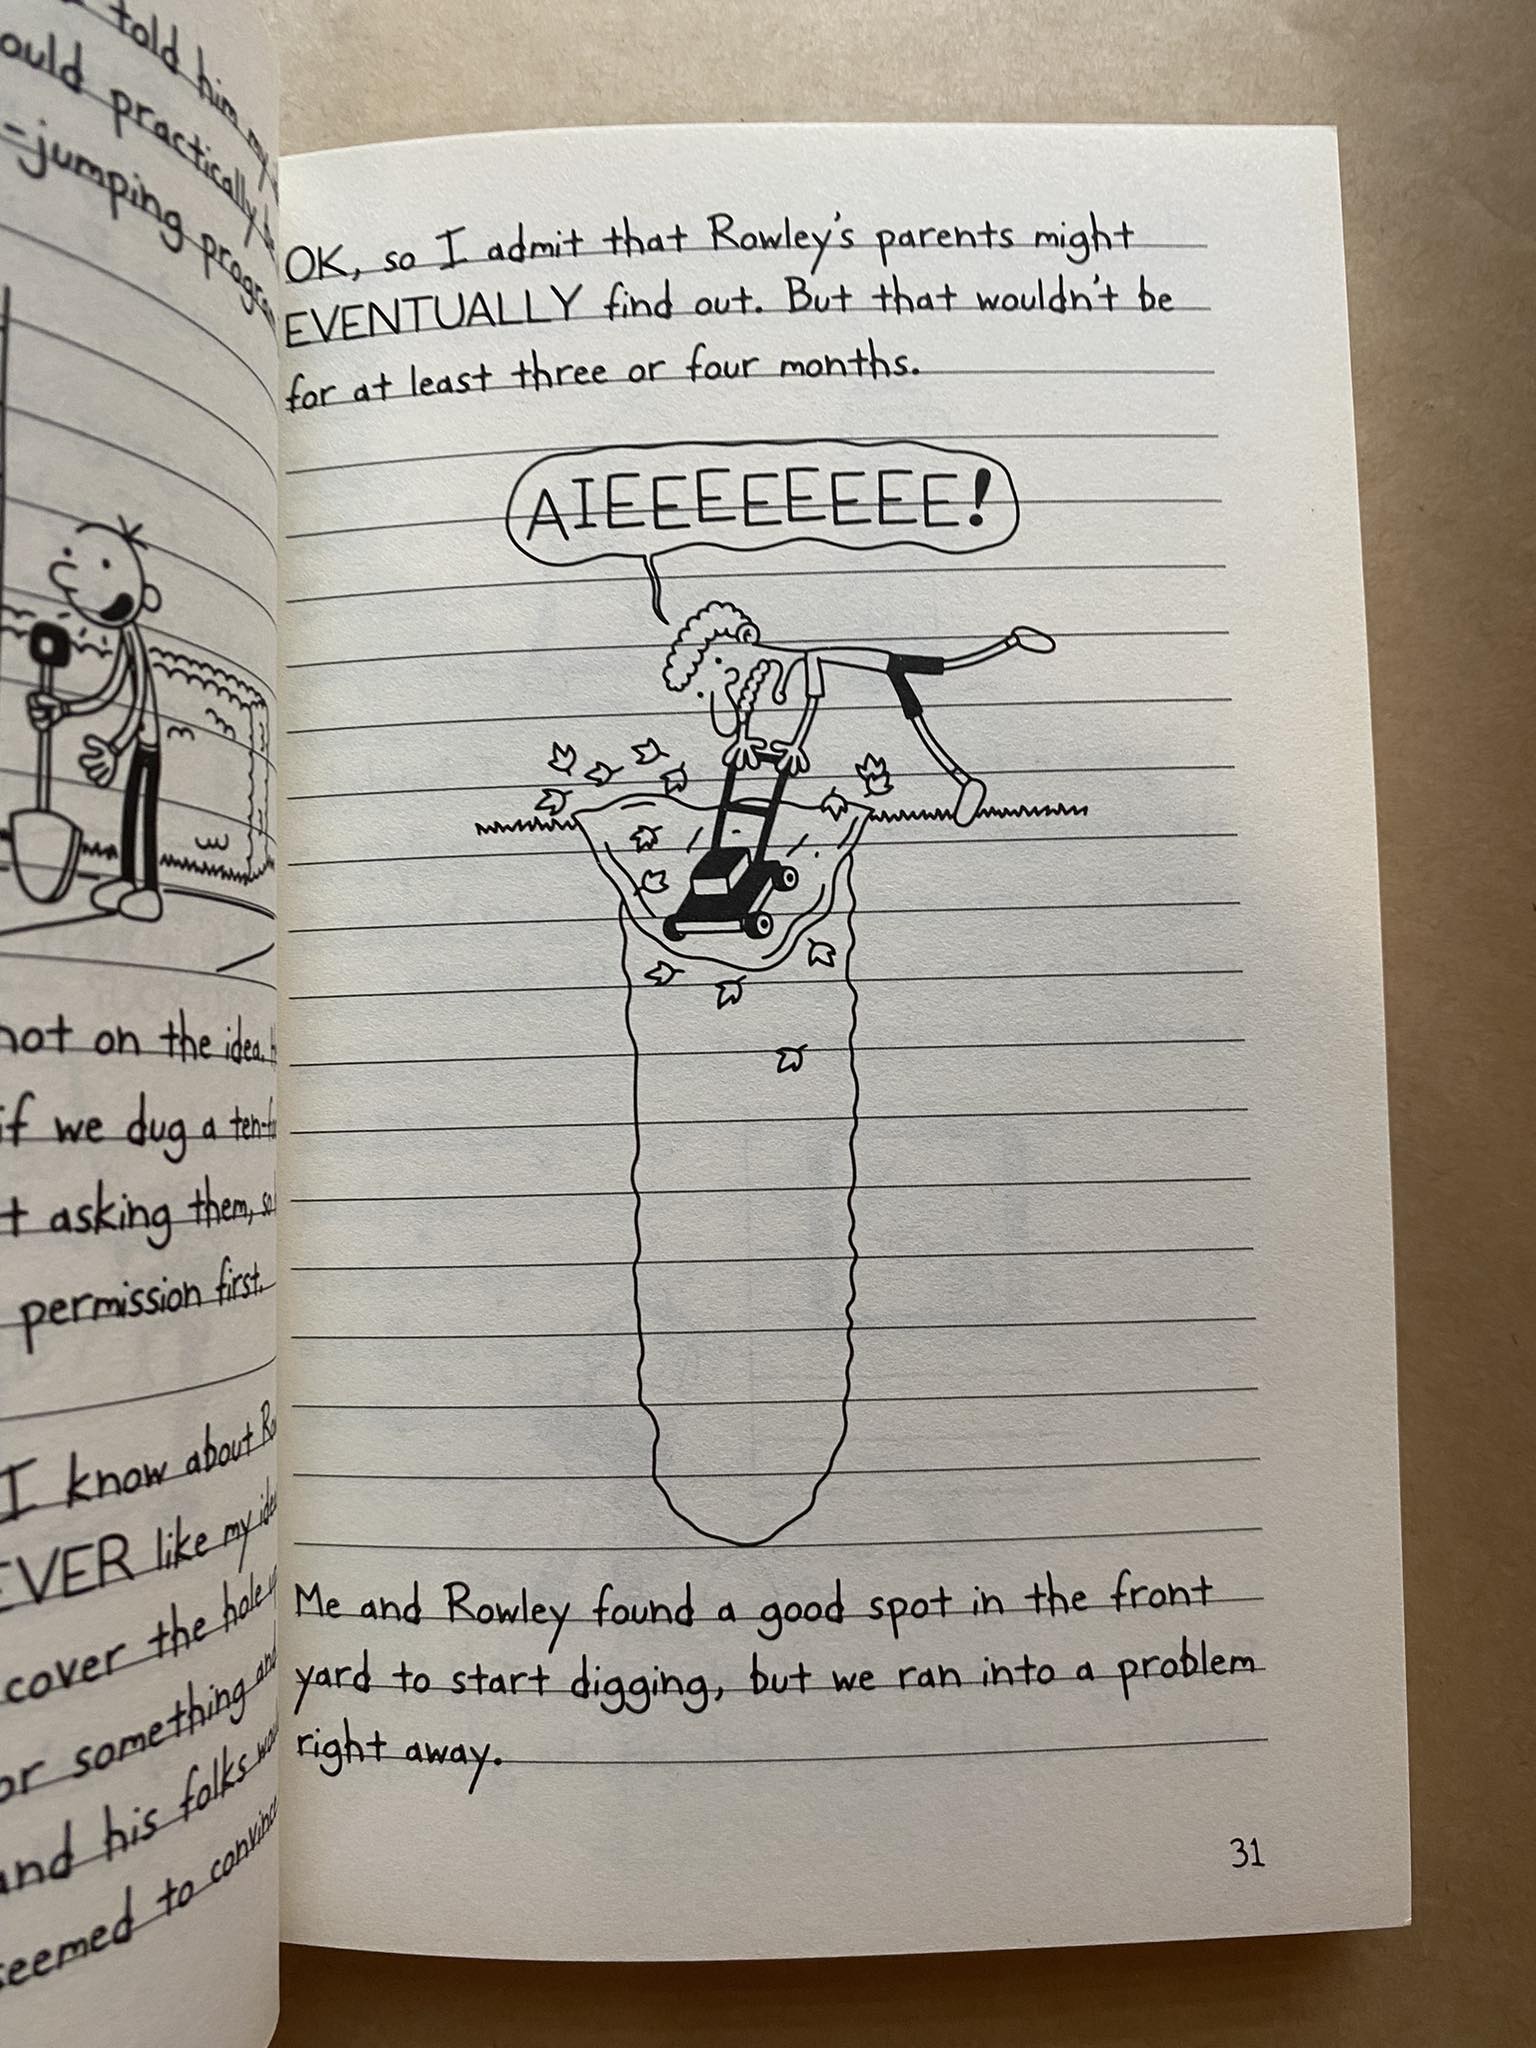 told him my
ould practically
-jumping
not on the idea.
if we dug a
t asking them,
permission first.
I know about
EVER like my
cover the hole
or something
and his folks
seemed to
OK, so I admit that Rowley's parents might
EVENTUALLY find out. But that wouldn't be
for at least three or four months.
AIEEEEEEEE!
Me and Rowley found a good spot in the front
yard to start digging, but we ran into a problem
right away.
31